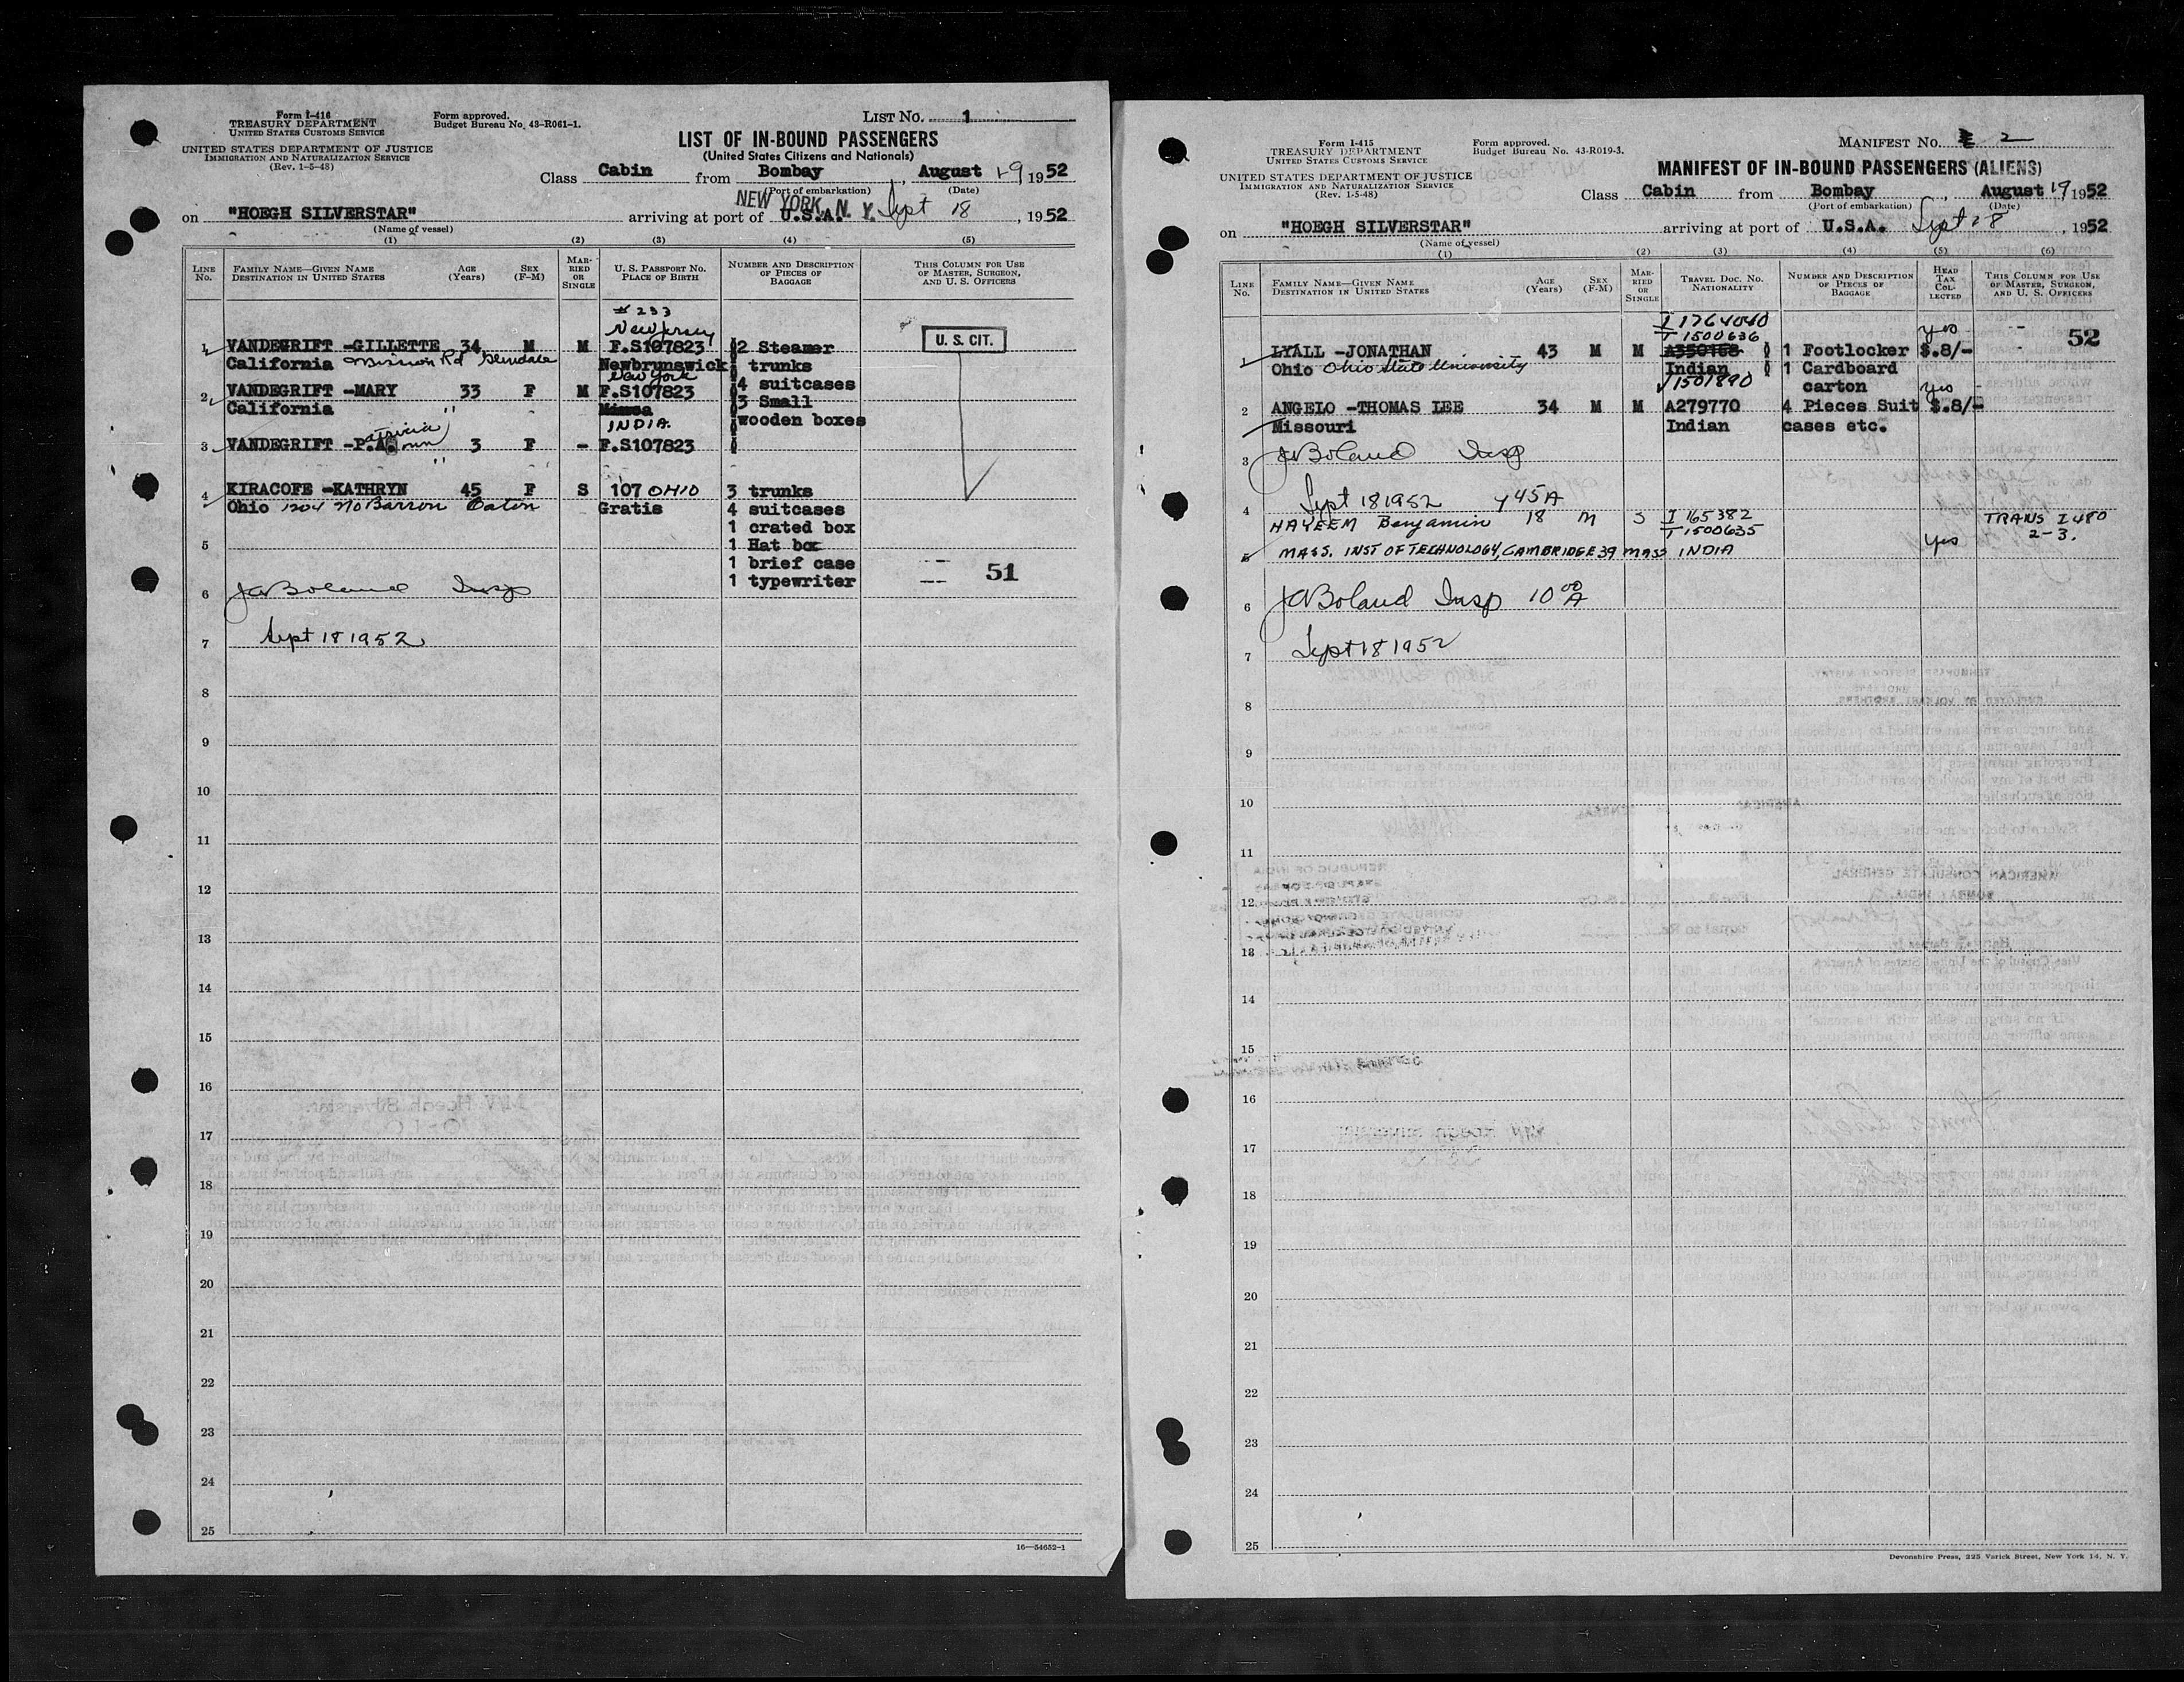 Form I-416
TREASURY DEPARTMENT
UNITED STATES CUSTOMS SERVICE
UNITED STATES DEPARTMENT OF JUSTICE
IMMIGRATION AND NATURALIZATION SERVICE
(Rev. 1-5-48)
Form approved.
Budget Bureau No. 43-R061-1.
LIST No. 1
LIST OF IN-BOUND PASSENGERS
(United States Citizens and Nationals)
Class Cabin from Bombay, August 19 1952
(Port of embarkation) (Date)
NEW YORK, N. Y.
on "HOEGH SILVERSTAR" arriving at port of U.S.A. Sept 18, 1952
(Name of vessel)
(1) (2) (3) (4) (5)
LINE No. FAMILY NAME—GIVEN NAME DESTINATION IN UNITED STATES AGE (Years) SEX (F-M) MARRIED OR SINGLE U. S. PASSPORT NO. PLACE OF BIRTH NUMBER AND DESCRIPTION OF PIECES OF BAGGAGE THIS COLUMN FOR USE OF MASTER, SURGEON, AND U. S. OFFICERS
# 233
New Jersey
1 VANDEGRIFT -GILLETTE 34 M M F.S107823 2 Steamer U. S. CIT.
California Mission Rd Glendale Newbrunswick trunks
New York
2 VANDEGRIFT -MARY 33 F M F.S107823 4 suitcases
California " 3 Small
INDIA. wooden boxes
3 VANDEGRIFT -P.A. Patricia Ann 3 F - F.S107823
"
4 KIRACOFE -KATHRYN 45 F S 107 OHIO 3 trunks
Ohio 1204 No Barron Eaton Gratis 4 suitcases
1 crated box
5 1 Hat box
1 brief case
1 typewriter 51
6 J A Boland Insp
7 Sept 18 1952
8
9
10
11
12
13
14
15
16
17
18
19
20
21
22
23
24
25
16—54652-1
Form I-415
TREASURY DEPARTMENT
UNITED STATES CUSTOMS SERVICE
UNITED STATES DEPARTMENT OF JUSTICE
IMMIGRATION AND NATURALIZATION SERVICE
(Rev. 1-5-48)
Form approved.
Budget Bureau No. 43-R019-3.
MANIFEST No. 2
MANIFEST OF IN-BOUND PASSENGERS (ALIENS)
Class Cabin from Bombay, August 19 1952
(Port of embarkation) (Date)
on "HOEGH SILVERSTAR" arriving at port of U.S.A. Sept 18, 1952
(Name of vessel)
(1) (2) (3) (4) (5) (6)
LINE No. FAMILY NAME—GIVEN NAME DESTINATION IN UNITED STATES AGE (Years) SEX (F-M) MARRIED OR SINGLE TRAVEL DOC. NO. NATIONALITY NUMBER AND DESCRIPTION OF PIECES OF BAGGAGE HEAD TAX COLLECTED THIS COLUMN FOR USE OF MASTER, SURGEON, AND U. S. OFFICERS
I 1764040
T 1500636 yes 52
1 LYALL -JONATHAN 43 M M A350168 1 Footlocker $.8/-
Ohio Ohio State University Indian 1 Cardboard
V1501890 carton yes
2 ANGELO -THOMAS LEE 34 M M A279770 4 Pieces Suit $.8/-
Missouri Indian cases etc.
3 J A Boland Insp
4 Sept 18 1952 945A
HAYEEM Benjamin 18 M S I 165382 TRANS I 480
T 1500635 2-3.
5 MASS. INST OF TECHNOLOGY, CAMBRIDGE 39 MASS INDIA yes
6 J A Boland Insp 10 00 A
7 Sept 18 1952
8
9
10
11
12
13
14
15
16
17
18
19
20
21
22
23
24
25
Devonshire Press, 225 Varick Street, New York 14, N. Y.